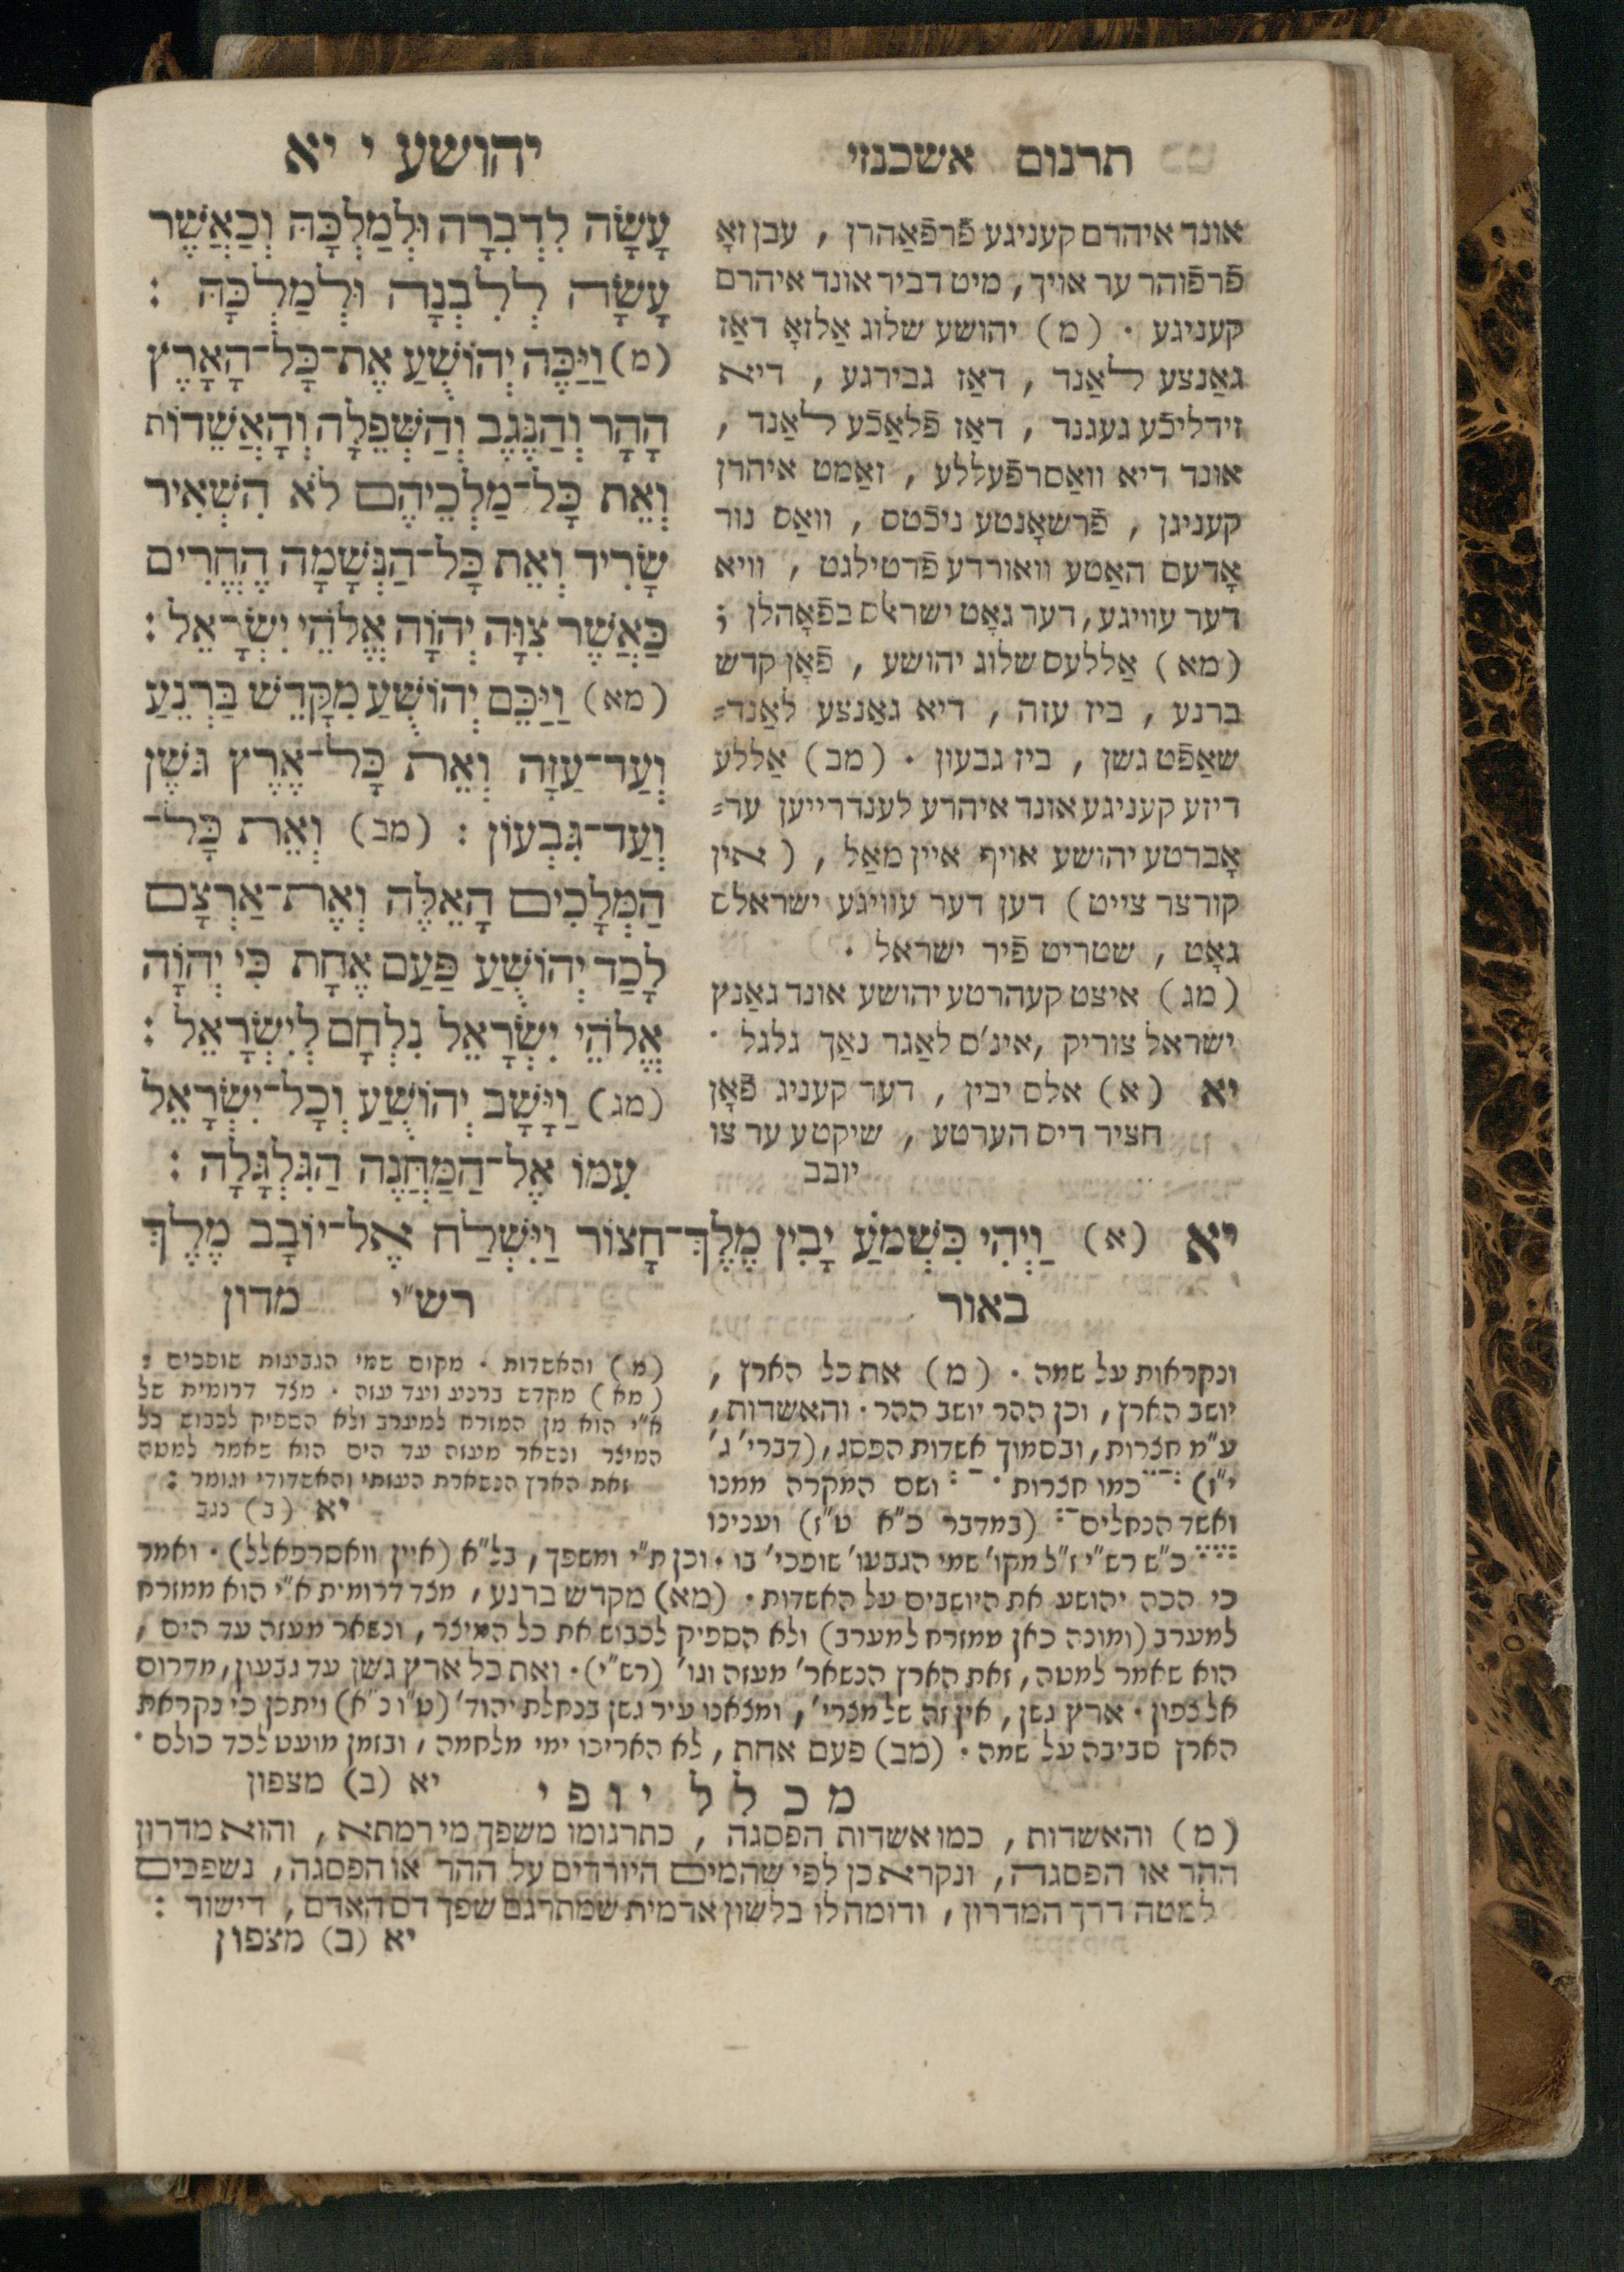 תרגום אשכנזי
אונד איהרם קעניגע פֿרפֿאַהרן, עבן זאָ
פֿרפֿוהר ער אויך, מיט דביר אונד איהרם
קעניגע. (מ) יהושע שלוג אַלזאָ דאַז
גאַנצע לאַנד, דאַז גבירגע, דיא
זידליכֿע געגנד, דאַז פֿלאַכֿע לאַנד,
אונד דיא וואַסרפֿעללע, זאַמט איהרן
קעניגן, פֿרשאָנטע ניכֿטס, וואַס נור
אָדעם האַטע וואורדע פֿרטילגט, וויא
דער עוויגע, דער גאָט ישראלס בפֿאָהלן;
(מא) אַללעס שלוג יהושע, פֿאָן קדש
ברנע, ביז עזה, דיא גאַנצע לאַנד=
שאַפֿט גשן, ביז גבעון. (מב) אַללע
דיזע קעניגע אונד איהרע לענדרייען ער=
אָברטע יהושע אויף איין מאַל, (אין
קורצר צייט) דען דער עוויגע ישראלס
גאָט, שטריט פֿיר ישראל.
(מג) איצט קעהרטע יהושע אונד גאַנץ
ישראל צוריק, אינ'ס לאַגר נאַך גלגל.
יא (א) אלס יבין, דער קעניג פֿאָן
חציר דיס הערטע, שיקטע ער צו
יובב
יהושע י יא
עָשָׂה לִדְבִרָה וּלְמַלְכָּהּ וְכַאֲשֶׁר
עָשָׂה לְלִבְנָה וּלְמַלְכָּהּ:
(מ) וַיַּכֶּה יְהוֹשֻׁעַ אֶת־כָּל־הָאָרֶץ
הָהָר וְהַנֶּגֶב וְהַשְּׁפֵלָה וְהָאֲשֵׁדוֹת
וְאֵת כָּל־מַלְכֵיהֶם לֹא הִשְׁאִיר
שָׂרִיד וְאֵת כָּל־הַנְּשָׁמָה הֶחֱרִים
כַּאֲשֶׁר צִוָּה יְהוָֹה אֱלֹהֵי יִשְׂרָאֵל:
(מא) וַיַּכֵּם יְהוֹשֻׁעַ מִקָּדֵשׁ בַּרְנֵעַ
וְעַד־עַזָּה וְאֵת כָּל־אֶרֶץ גֹּשֶׁן
וְעַד־גִּבְעוֹן: (מב) וְאֵת כָּל־
הַמְּלָכִים הָאֵלֶּה וְאֶת־אַרְצָם
לָכַד יְהוֹשֻׁעַ פַּעַם אֶחָת כִּי יְהוָֹה
אֱלֹהֵי יִשְׂרָאֵל נִלְחָם לְיִשְׂרָאֵל:
(מג) וַיָּשָׁב יְהוֹשֻׁעַ וְכָל־יִשְׂרָאֵל
עִמּוֹ אֶל־הַמַּחֲנֶה הַגִּלְגָּלָה:
יא (א) וַיְהִי כִּשְׁמֹעַ יָבִין מֶלֶךְ־חָצוֹר וַיִּשְׁלַח אֶל־יוֹבָב מֶלֶךְ
מדון
באור
ונקראות על שמה. (מ) את כל הארץ,
יושב הארץ, וכן ההר יושב ההר. והאשדות,
ע"מ חצרות, ובסמוך אשדות הפסג, (דברי' ג'
י"ז) כמו חצרות ושם המקרה ממנו
ואשד הנחלים (במדבר כ"א ט"ז) וענינו
רש"י
(מ) והאשדות. מקום שמי הגבעות שופכים:
(מא) מקדש ברנע ועד עזה. מצד דרומית של
א"י הוא מן המזרח למערב ולא הספיק לכבוש כל
המיצר ונשאר מעזה עד הים הוא שאמר למטה
זאת הארץ הנשארת העזתי והאשדודי וגומר:
יא (ב) נגב
כ"ש רש"י ז"ל מקו' שמי הגבעו' שופכי' בו. וכן ת"י ומשפך, בל"א (איין וואסרפאלל). ואמר
כי הכה יהושע את היושבים על האשדות. (מא) מקדש ברנע, מצד דרומית א"י הוא ממזרח
למערב (ומונה כאן ממזרח למערב) ולא הספיק לכבוש את כל המיצר, ונשאר מעזה עד הים,
הוא שאמר למטה, זאת הארץ הנשאר' מעזה וגו' (רש"י). ואת כל ארץ גשן עד גבעון, מדרום
אל צפון. ארץ גשן, אין זה של מצרי', ומצאנו עיר גשן בנחלת יהוד' (ט"ו נ"א) ויתכן כי נקראת
הארץ סביבה על שמה. (מב) פעם אחת, לא האריכו ימי מלחמה, ובזמן מועט לכד כולם.
יא (ב) מצפון
מכלל יופי
(מ) והאשדות, כמו אשדות הפסגה, כתרגומו משפך מי רמתא, והוא מדרון
ההר או הפסגה, ונקרא כן לפי שהמים היורדים על ההר או הפסגה, נשפכים
למטה דרך המדרון, ודומה לו בלשון ארמית שמתרגם שפך דם האדם, דישוד:
יא (ב) מצפון